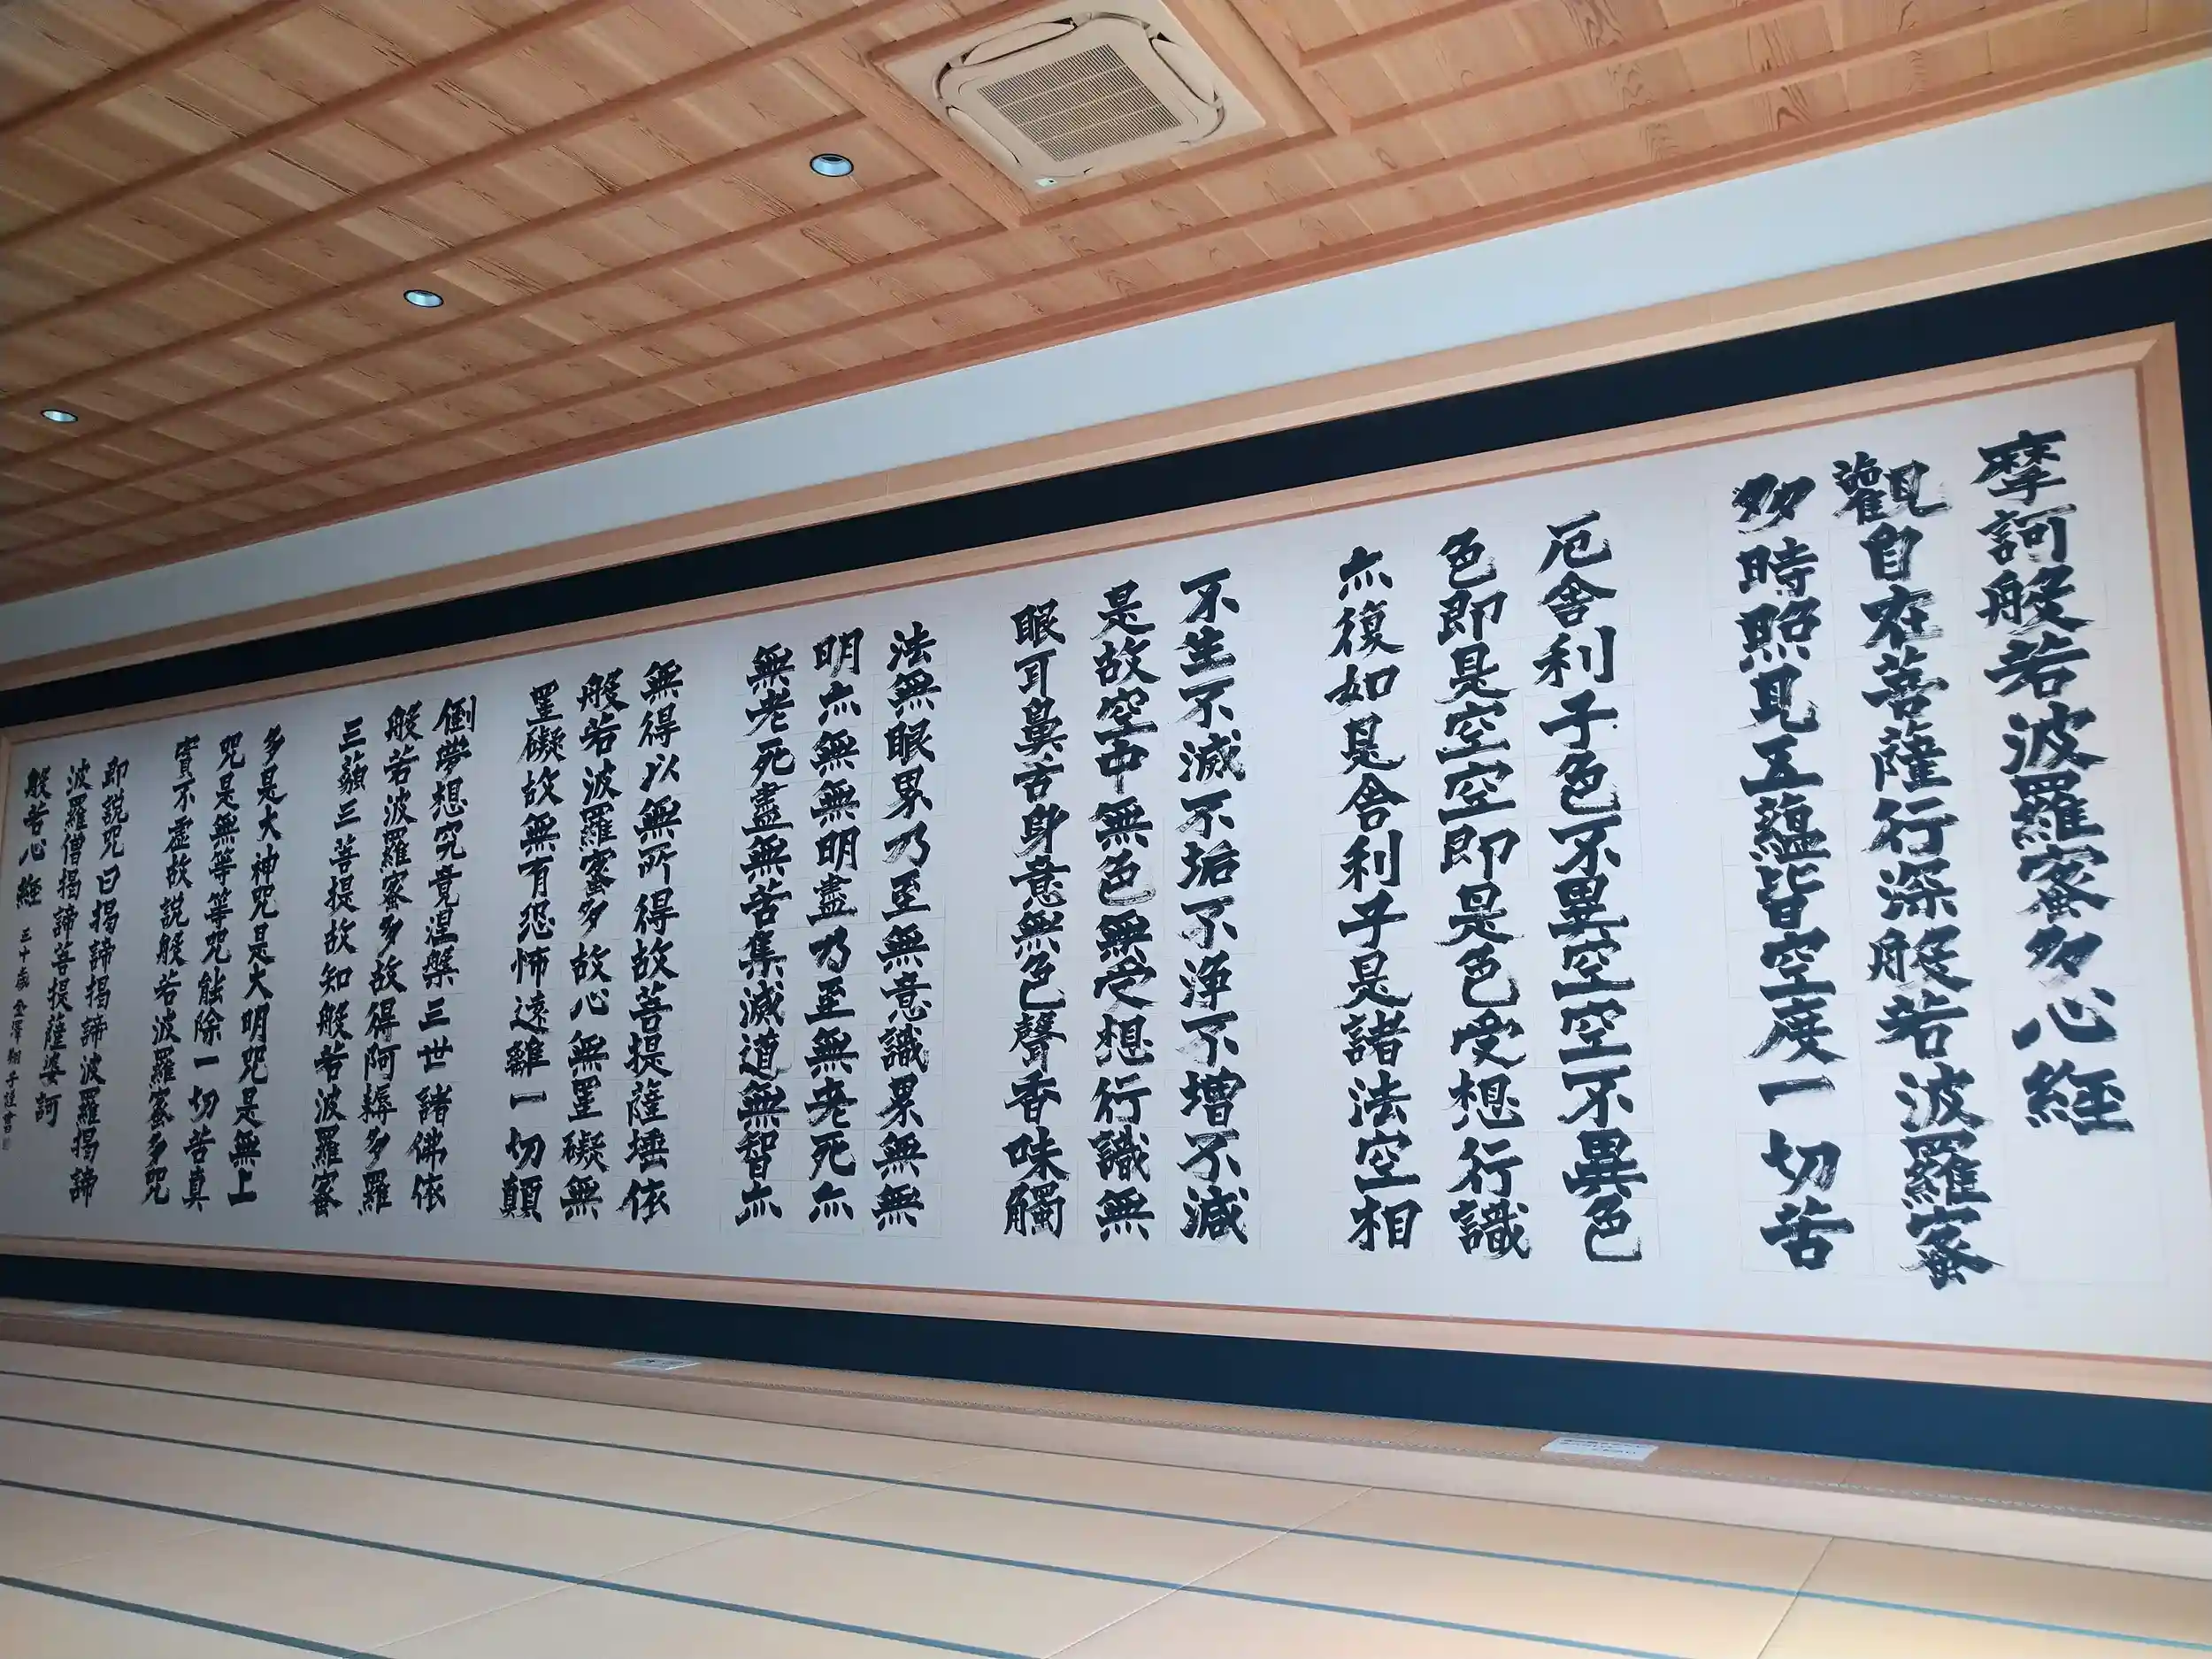 摩訶般若波羅蜜多心経
觀自在菩薩行深般若波羅蜜
多時照見五蘊皆空度一切苦
厄舎利子色不異空空不異色
色即是空空即是色受想行識
亦復如是舎利子是諸法空相
不生不滅不垢不浄不増不減
是故空中無色無受想行識無
眼耳鼻舌身意無色聲香味觸
法無眼界乃至無意識界無無
明亦無無明盡乃至無老死亦
無老死盡無苦集滅道無智亦
無得以無所得故菩提薩埵依
般若波羅蜜多故心無罣礙無
罣礙故無有恐怖遠離一切顛
倒夢想究竟涅槃三世諸佛依
般若波羅蜜多故得阿耨多羅
三藐三菩提故知般若波羅蜜
多是大神咒是大明咒是無上
咒是無等等咒能除一切苦真
實不虚故説般若波羅蜜多咒
即説咒曰揭諦揭諦波羅揭諦
波羅僧揭諦菩提薩婆訶
般若心経 三十歳 金澤翔子謹書